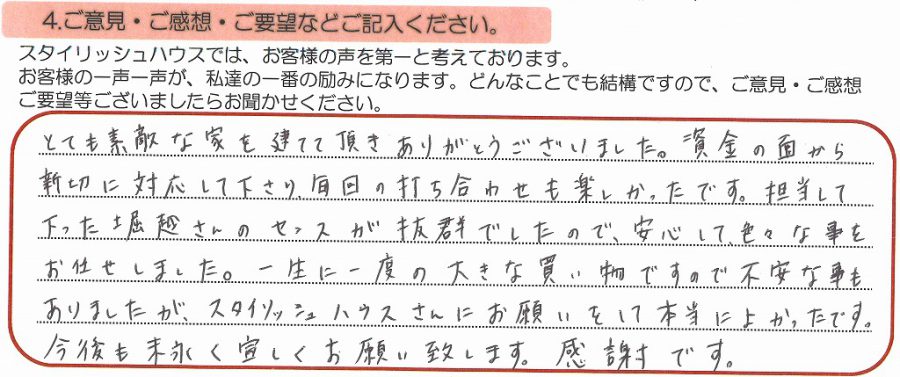 4.ご意見・ご感想・ご要望などご記入ください。
スタイリッシュハウスでは、お客様の声を第一と考えております。
お客様の一声一声が、私達の一番の励みになります。どんなことでも結構ですので、ご意見・ご感想
ご要望等ございましたらお聞かせください。
とても素敵な家を建てて頂きありがとうございました。資金の面から
親切に対応して下さり、毎回の打ち合わせも楽しかったです。担当して
下った堀越さんのセンスが抜群でしたので、安心して、色々な事を
お任せしました。一生に一度の大きな買い物ですので不安な事も
ありましたが、スタイリッシュハウスさんにお願いをして本当によかったです。
今後も末永く宜しくお願い致します。感謝です。